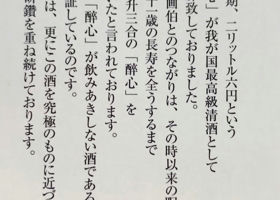 期、二リットル六円という
心」が我が国最高級清酒として
致しておりました。
画伯とのつながりは、その時以来の
十一歳の長寿を全うするまで
升三合の「醉心」を
たと言われております。
「醉心」が飲みあきしない酒である
証しているのです。
は、更にこの酒を究極のものに近づ
鑽を重ね続けております。